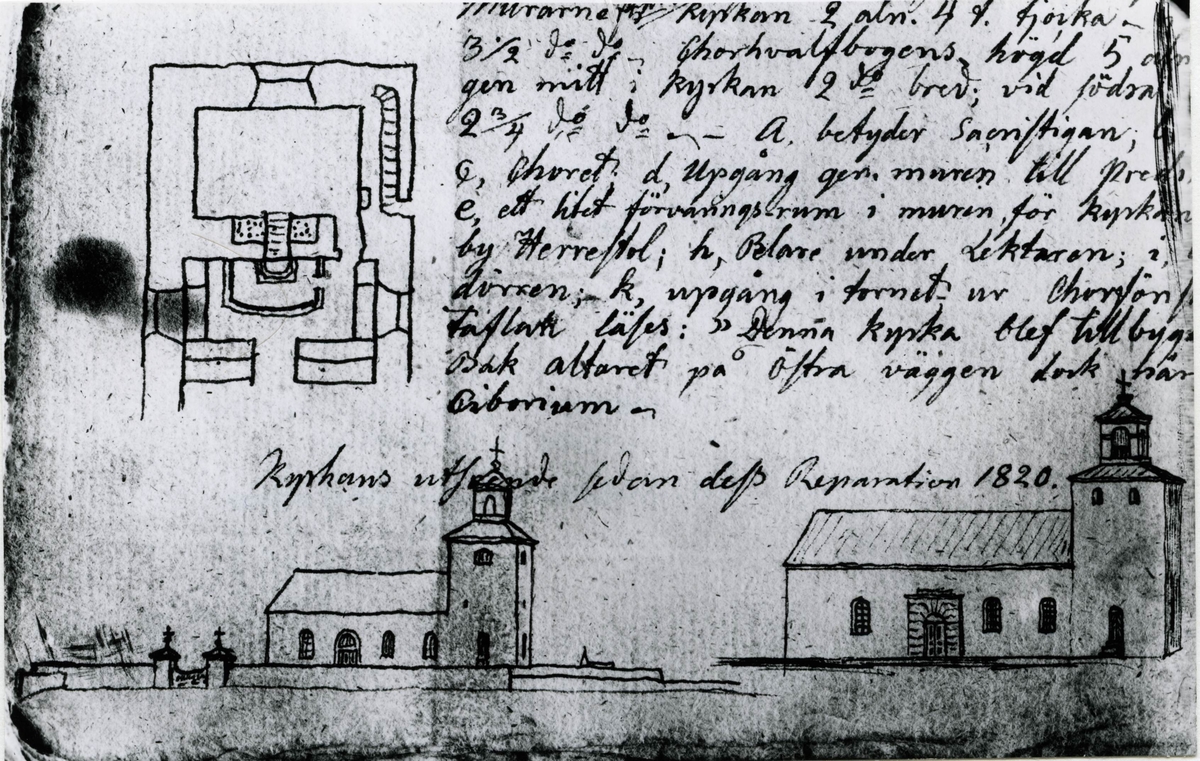 Murarne kyrkan 2 aln. 4 t. tjocka
3 1/2 do do Chorhvalfbogens högd 5 aln
gen mitt i kyrkan 2 do bred; vid södra
2 3/4 do do A, betyder Sacristigan;
C, Choret d, Upgång gen. muren till Pred
e, ett litet förvaringsrum i muren för kyrkan
by Herrestol; h, Pelare under Lektaren; i,
dörren; k, upgång i tornet ur
taflan läses: "Denna kyrka blef tillbyg
Bak altaret på östra väggen dock när
Ciborium
Kyrkans utseende sedan dess Reparation 1820.